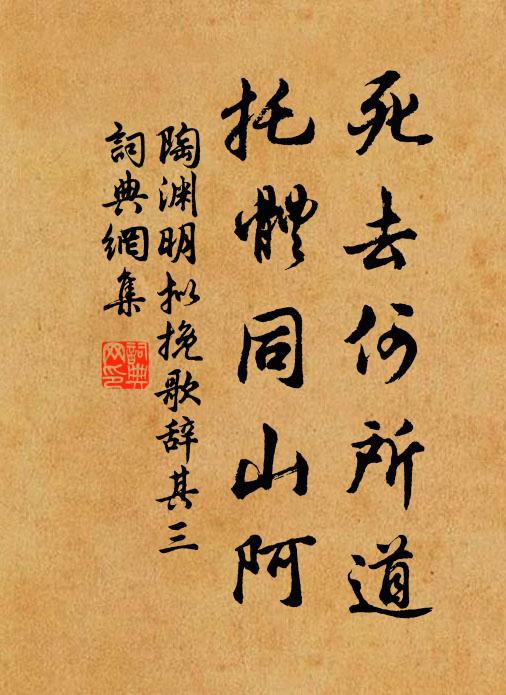 死去何所道
托體同山阿
陶渊明拟挽歌辞其三
詞典網集
詞典网印